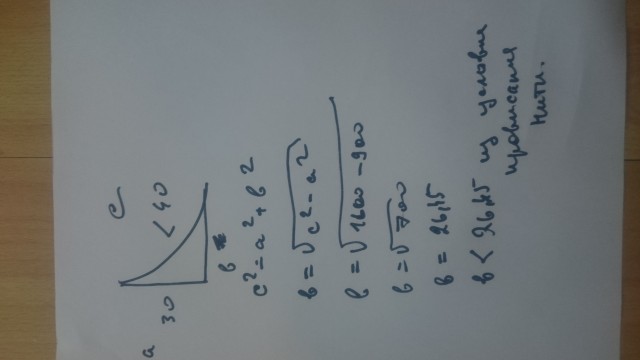 c
< 40
a
30
b
c² = a² + b²
b = √c² - a²
b = √1600 - 900
b = √700
b = 26,45
b < 26,45 из условия
провисания
нити.